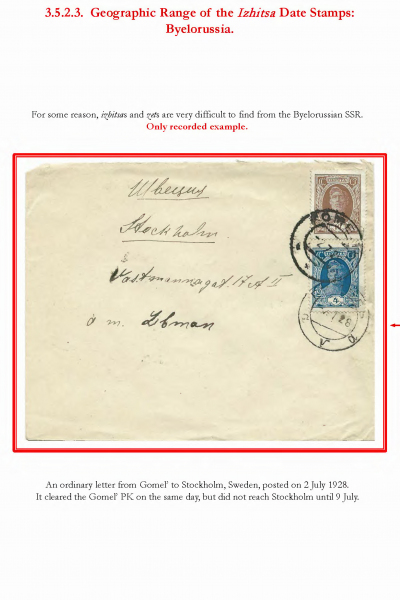 3.5.2.3. Geographic Range of the Izhitsa Date Stamps:
Byelorussia.
For some reason, izhitsas and zets are very difficult to find from the Byelorussian SSR.
Only recorded example.
Stockholm.
17 A II
An ordinary letter from Gomel' to Stockholm, Sweden, posted on 2 July 1928.
It cleared the Gomel' PK on the same day, but did not reach Stockholm until 9 July.